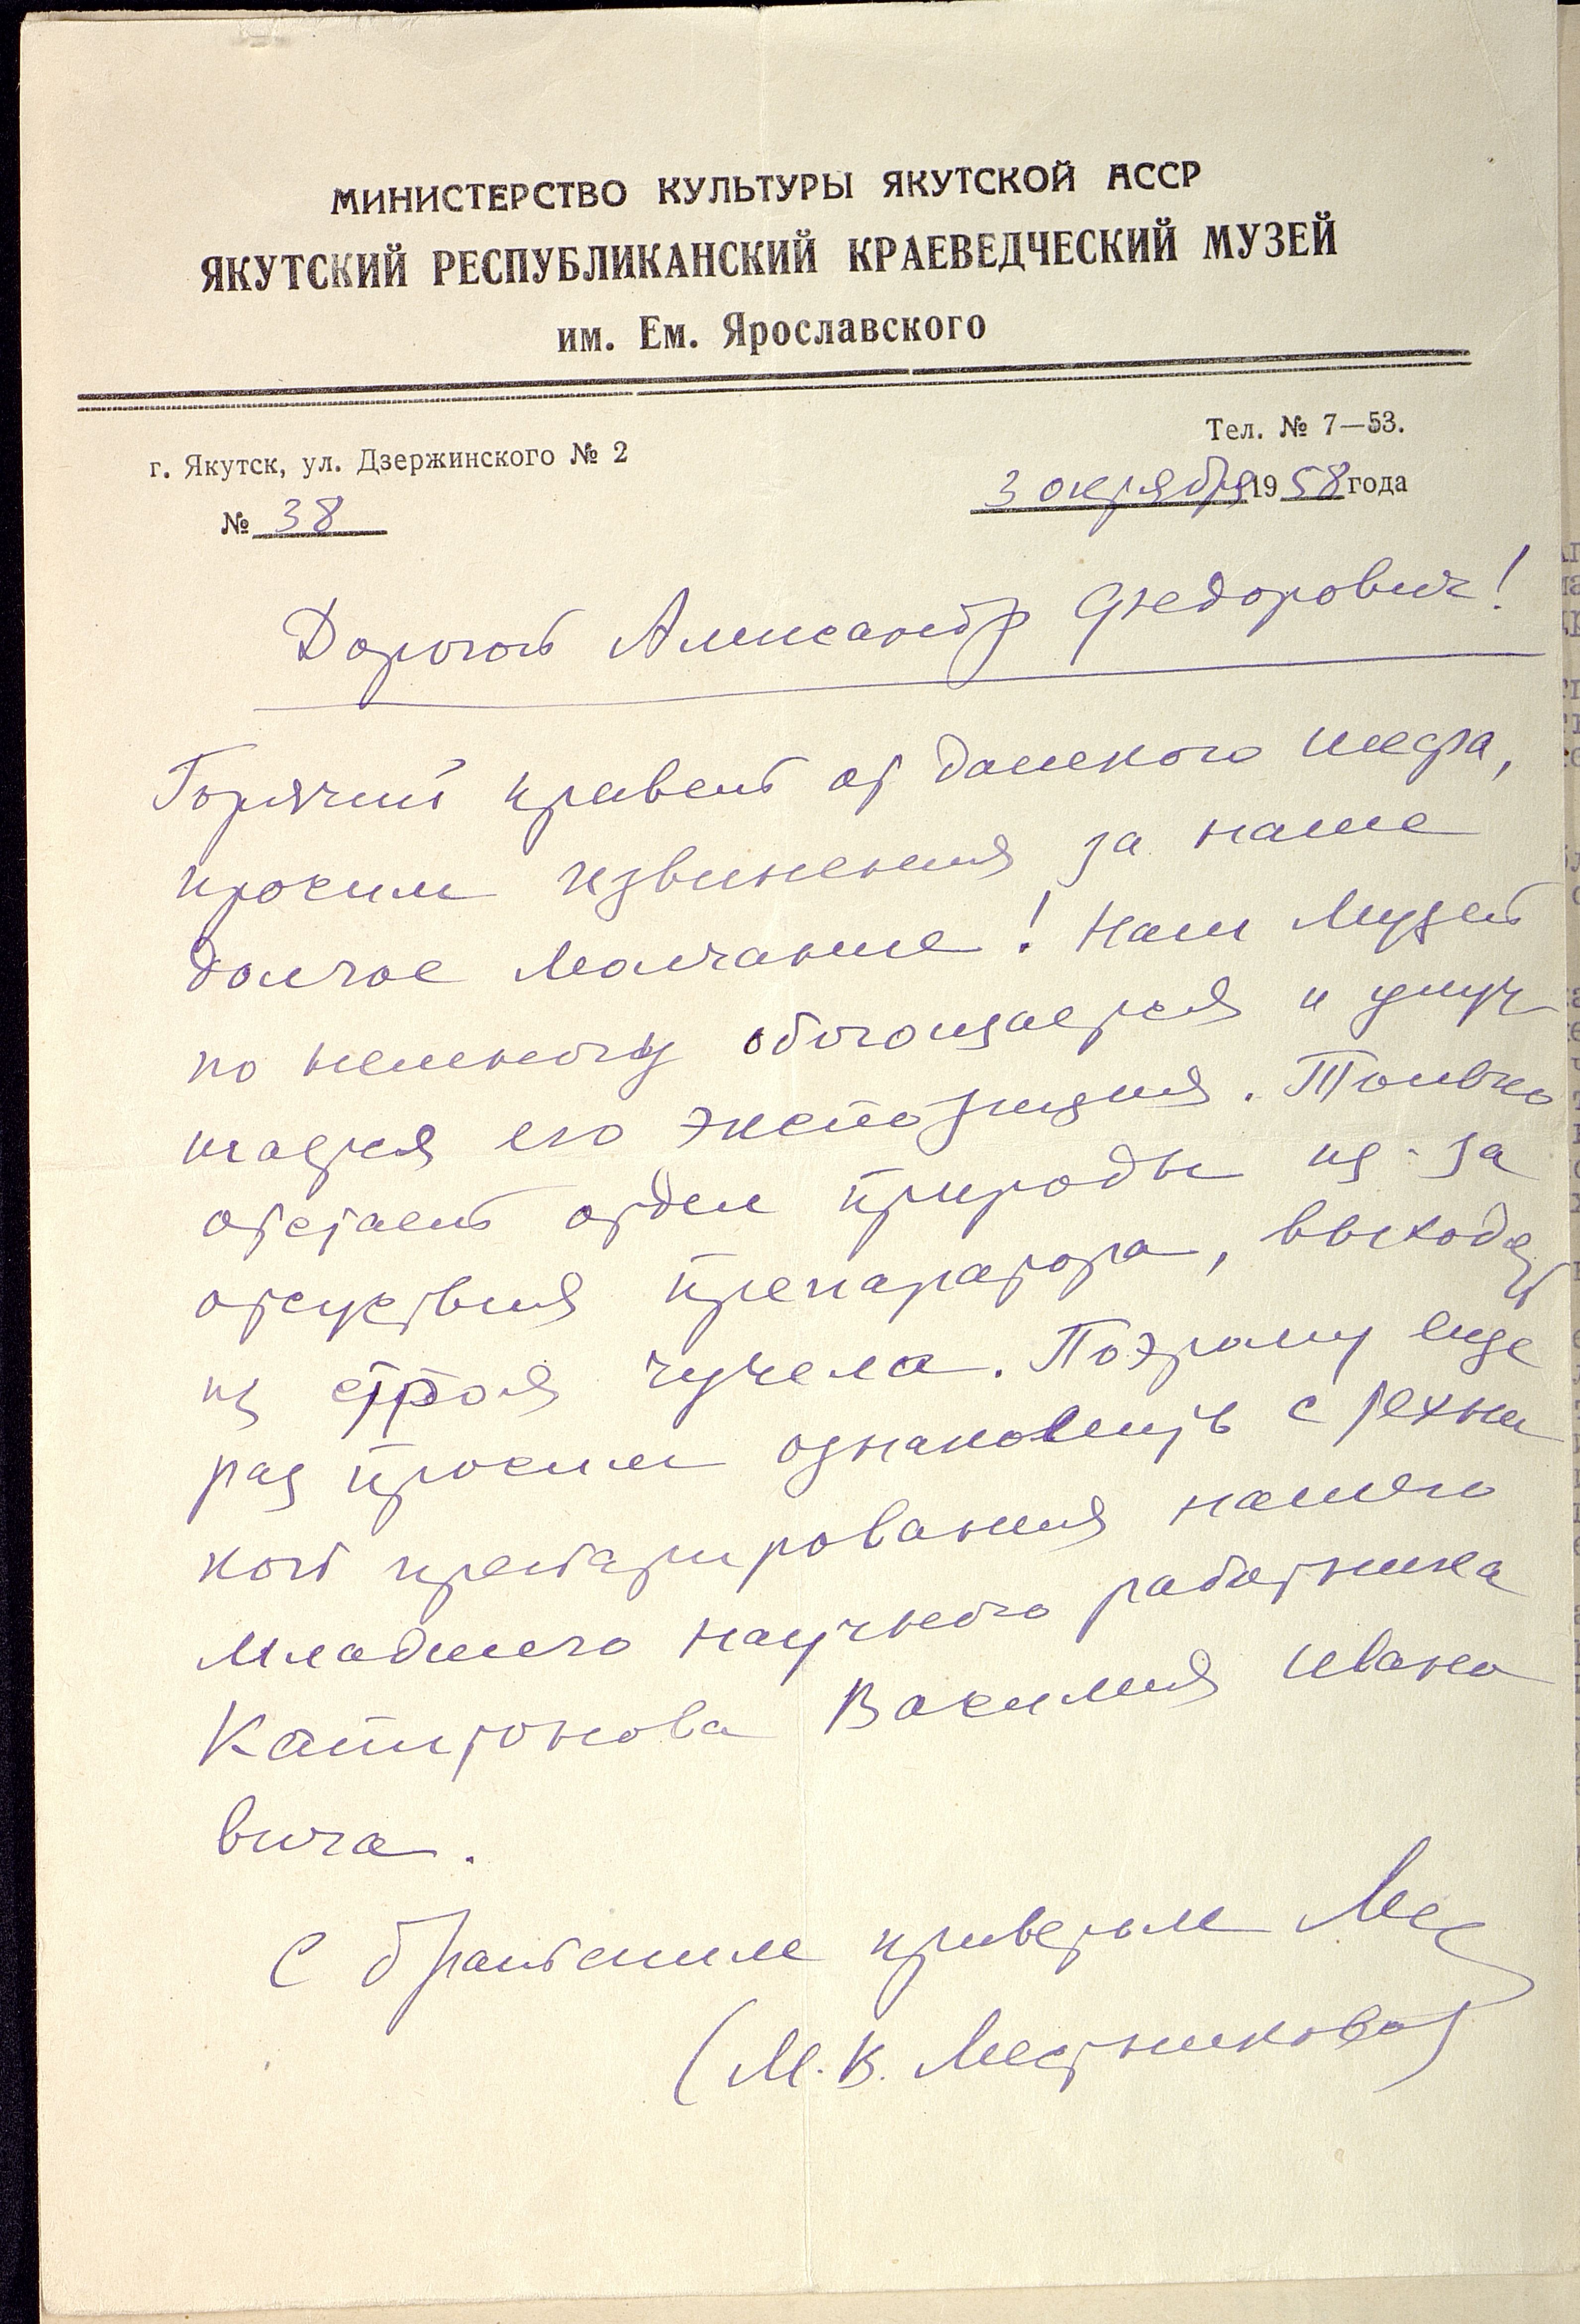 МИНИСТЕРСТВО КУЛЬТУРЫ ЯКУТСКОЙ АССР
ЯКУТСКИЙ РЕСПУБЛИКАНСКИЙ КРАЕВЕДЧЕСКИЙ МУЗЕЙ
им. Ем. Ярославского
Тел. № 7—53.
г. Якутск, ул. Дзержинского № 2
3 октября 1958 года
№ 38
Дорогой Александр Федорович!
Горячий привет от далекого шефа,
просим извинения за наше
долгое молчание! Наш Музей
по немногу обогощается и улуч
шается его экспозиция. Только
отстает отдел природы из-за
отсуствия препаратора, выходят
из строя чучела. Поэтому еще
раз просим ознакомить с техни
кой препарирования нашего
младшего научного работника
Капитонова Василия Ивано
вича.
С братским приветом
(М. В. Местникова)